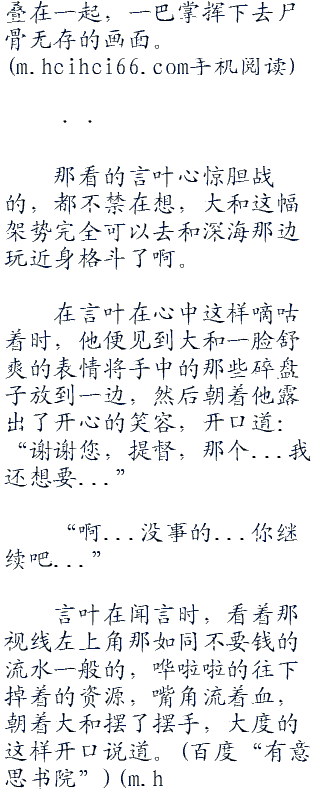 叠在一起，一巴掌挥下去尸
骨无存的画面。
(m.hcihci66.com手机阅读)
. .
那看的言叶心惊胆战
的，都不禁在想，大和这幅
架势完全可以去和深海那边
玩近身格斗了啊。
在言叶在心中这样嘀咕
着时，他便见到大和一脸舒
爽的表情将手中的那些碎盘
子放到一边，然后朝着他露
出了开心的笑容，开口道：
“谢谢您，提督，那个...我
还想要...”
“啊...没事的...你继
续吧...”
言叶在闻言时，看着那
视线左上角那如同不要钱的
流水一般的，哗啦啦的往下
掉着的资源，嘴角流着血，
朝着大和摆了摆手，大度的
这样开口说道。(百度“有意
思书院”)(m.h